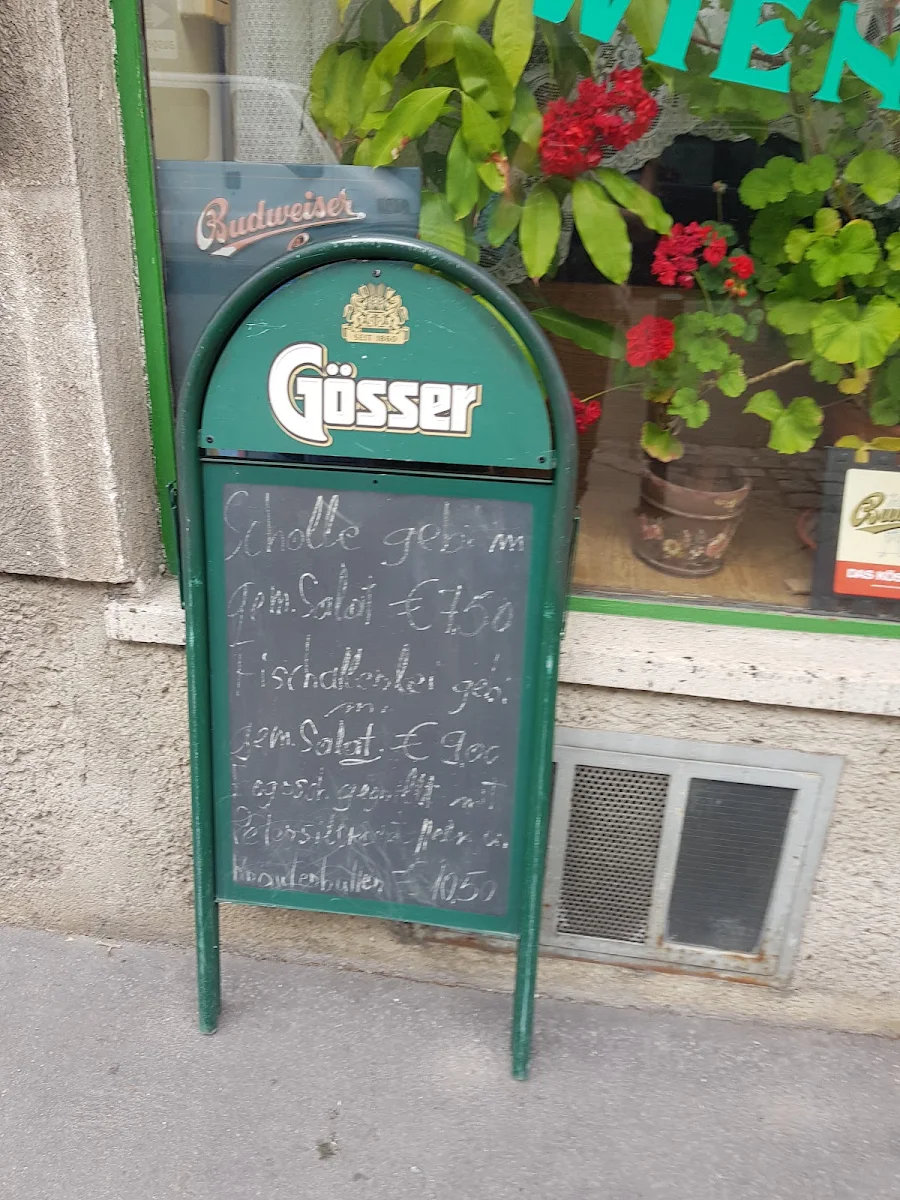 WIEN
Budweiser
SEIT 1860
Gösser
Scholle geb. m
gem. Salat € 7,50
Fischallerlei geb.
m.
gem. Salat € 9,00
Fogosch gegrillt mit
Kräuterbutter € 10,50
Bu
DAS KÖS